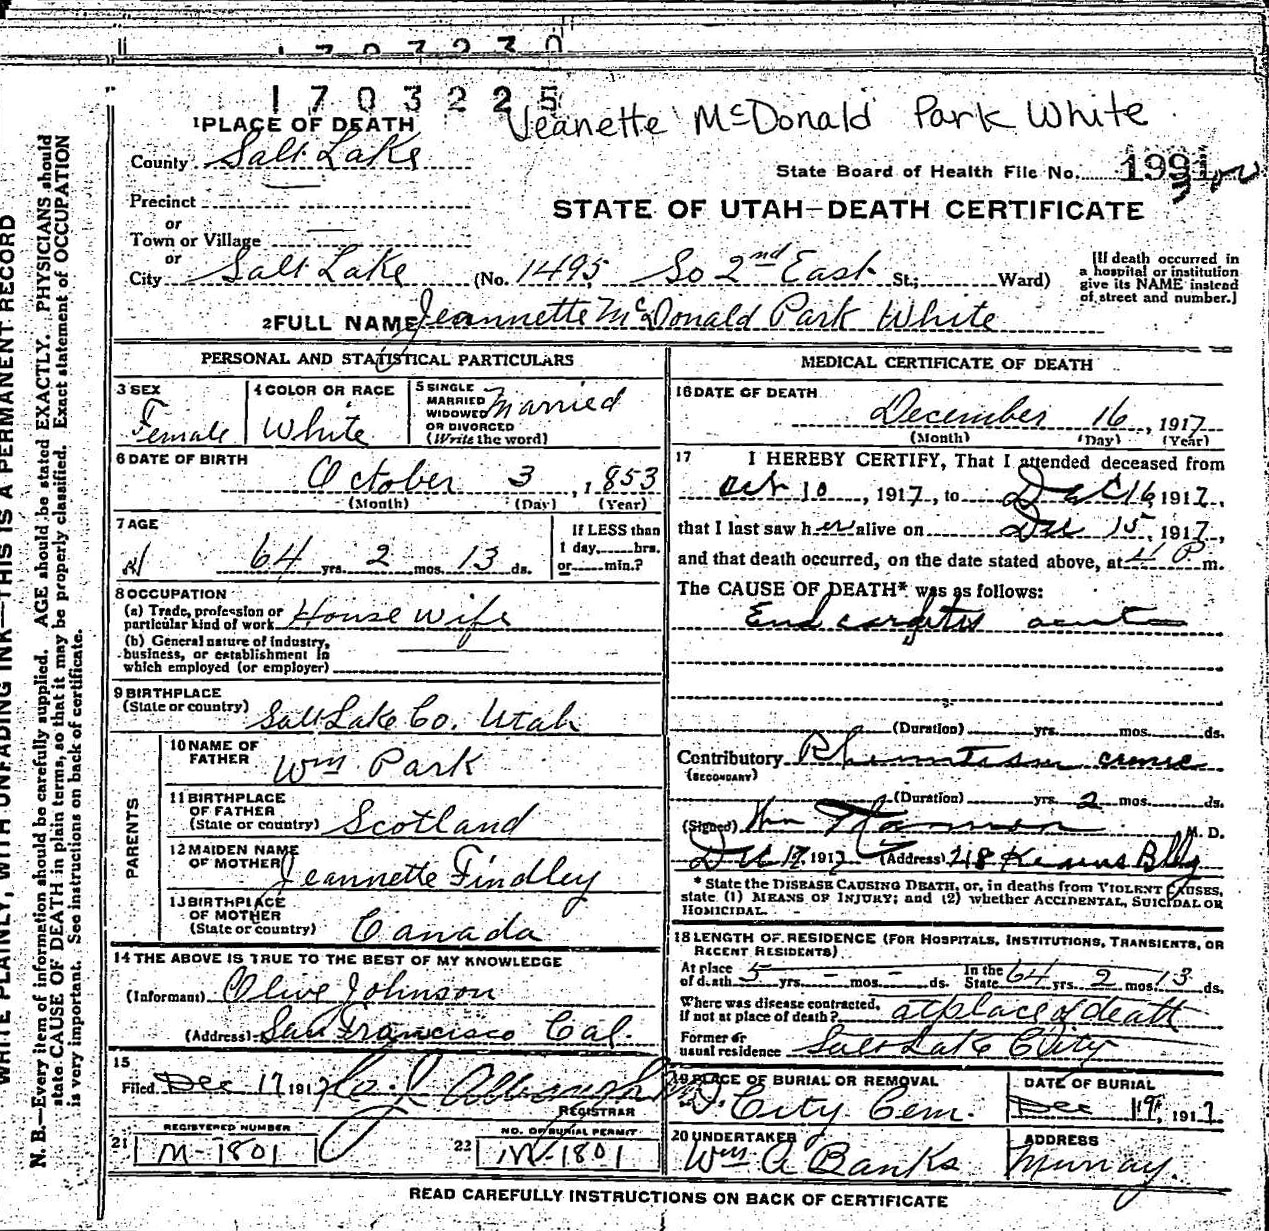 1703225
Jeanette McDonald Park White
1 PLACE OF DEATH
County Salt Lake
State Board of Health File No.
Precinct
or
Town or Village
STATE OF UTAH—DEATH CERTIFICATE
or
City Salt Lake (No. 1495 So 2nd East St.; Ward)
[If death occurred in
a hospital or institution
give its NAME instead
of street and number.]
2 FULL NAME Jeannette McDonald Park White
PERSONAL AND STATISTICAL PARTICULARS
3 SEX
Female
4 COLOR OR RACE
White
5 SINGLE
MARRIED
WIDOWED
OR DIVORCED
(Write the word)
Married
6 DATE OF BIRTH
October 3, 1853
(Month) (Day) (Year)
7 AGE
64 yrs. 2 mos. 13 ds.
If LESS than
1 day, hrs.
or min.?
8 OCCUPATION
(a) Trade, profession or
particular kind of work House wife
(b) General nature of industry,
business, or establishment in
which employed (or employer)
9 BIRTHPLACE
(State or country) Salt Lake Co. Utah
PARENTS
10 NAME OF
FATHER Wm Park
11 BIRTHPLACE
OF FATHER
(State or country) Scotland
12 MAIDEN NAME
OF MOTHER Jeannette Findley
13 BIRTHPLACE
OF MOTHER
(State or country) Canada
14 THE ABOVE IS TRUE TO THE BEST OF MY KNOWLEDGE
(Informant) Olive Johnson
(Address) San Francisco Cal.
15
Filed Dec 17 1917
REGISTRAR
REGISTERED NUMBER
21 M-1801
NO. OF BURIAL PERMIT
22 M-1801
MEDICAL CERTIFICATE OF DEATH
16 DATE OF DEATH
December 16, 1917
(Month) (Day) (Year)
17 I HEREBY CERTIFY, That I attended deceased from
Oct 10, 1917, to Dec 16, 1917,
that I last saw her alive on Dec 15, 1917,
and that death occurred, on the date stated above, at P m.
The CAUSE OF DEATH* was as follows:
Endcarditis acute
(Duration) yrs. mos. ds.
Contributory Rheumatism
(SECONDARY)
(Duration) yrs. 2 mos. ds.
(Signed) M. D.
Dec 17, 1917 (Address) 218 Kearns Bldg
* State the DISEASE CAUSING DEATH, or, in deaths from VIOLENT CAUSES,
state (1) MEANS OF INJURY; and (2) whether ACCIDENTAL, SUICIDAL OR
HOMICIDAL.
18 LENGTH OF RESIDENCE (FOR HOSPITALS, INSTITUTIONS, TRANSIENTS, OR
RECENT RESIDENTS)
At place
of death 5 yrs. mos. ds. In the
State 64 yrs. 2 mos. 13 ds.
Where was disease contracted,
if not at place of death? at place of death
Former or
usual residence Salt Lake City
19 PLACE OF BURIAL OR REMOVAL
City Cem.
DATE OF BURIAL
Dec 19, 1917
20 UNDERTAKER
Wm A Banks
ADDRESS
Murray.
READ CAREFULLY INSTRUCTIONS ON BACK OF CERTIFICATE
WRITE PLAINLY, WITH UNFADING INK—THIS IS A PERMANENT RECORD
N. B.—Every item of information should be carefully supplied. AGE should be stated EXACTLY. PHYSICIANS should
state CAUSE OF DEATH in plain terms, so that it may be properly classified. Exact statement of OCCUPATION
is very important. See instructions on back of certificate.